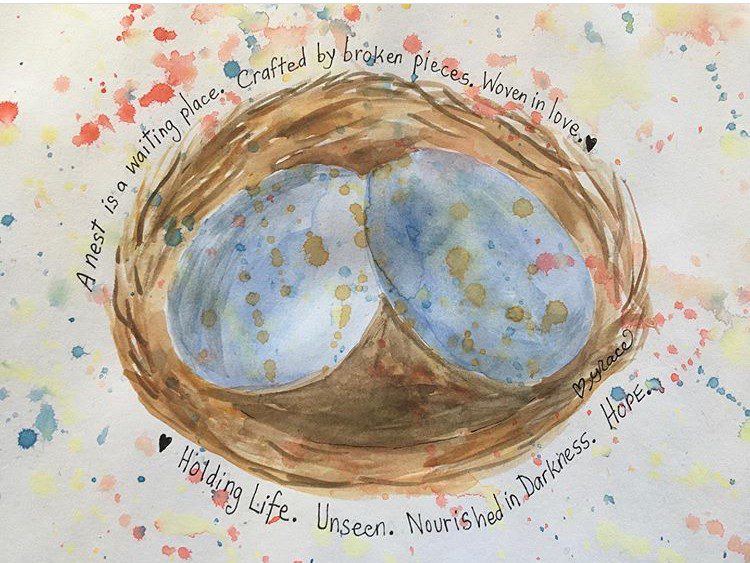 A nest is a waiting place. Crafted by broken pieces. Woven in love. ♥
♥ Holding Life. Unseen. Nourished in Darkness. HOPE.